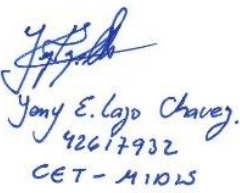 Yeny E. Lazo Chavez.
42617932
CET - MIDIS